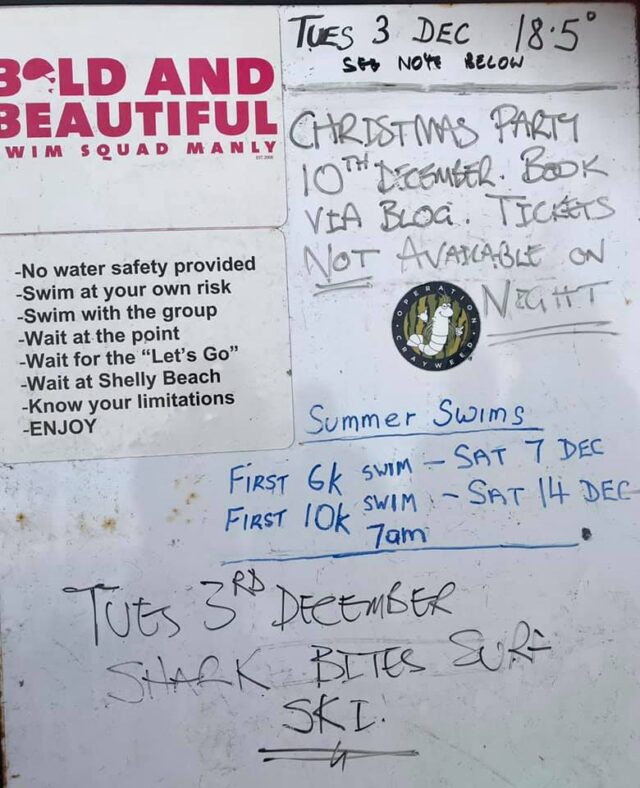 BOLD AND
BEAUTIFUL
SWIM SQUAD MANLY
EST. 2008
TUES 3 DEC 18.5°
SEE NOTE BELOW
CHRISTMAS PARTY
10TH DECEMBER. BOOK
VIA BLOG. TICKETS
NOT AVAILABLE ON
NIGHT
OPERATION
CRAYWEED
-No water safety provided
-Swim at your own risk
-Swim with the group
-Wait at the point
-Wait for the “Let’s Go”
-Wait at Shelly Beach
-Know your limitations
-ENJOY
Summer Swims
FIRST 6k SWIM – SAT 7 DEC
FIRST 10k SWIM – SAT 14 DEC
7am
TUES 3RD DECEMBER
SHARK BITES SURF
SKI.